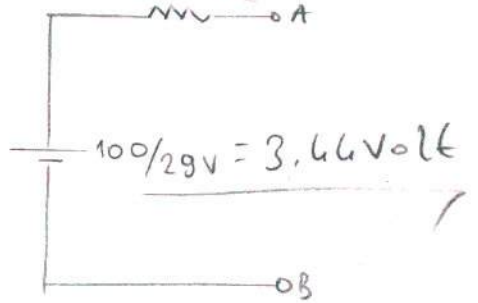 A
100/29V = 3.44Volt
B